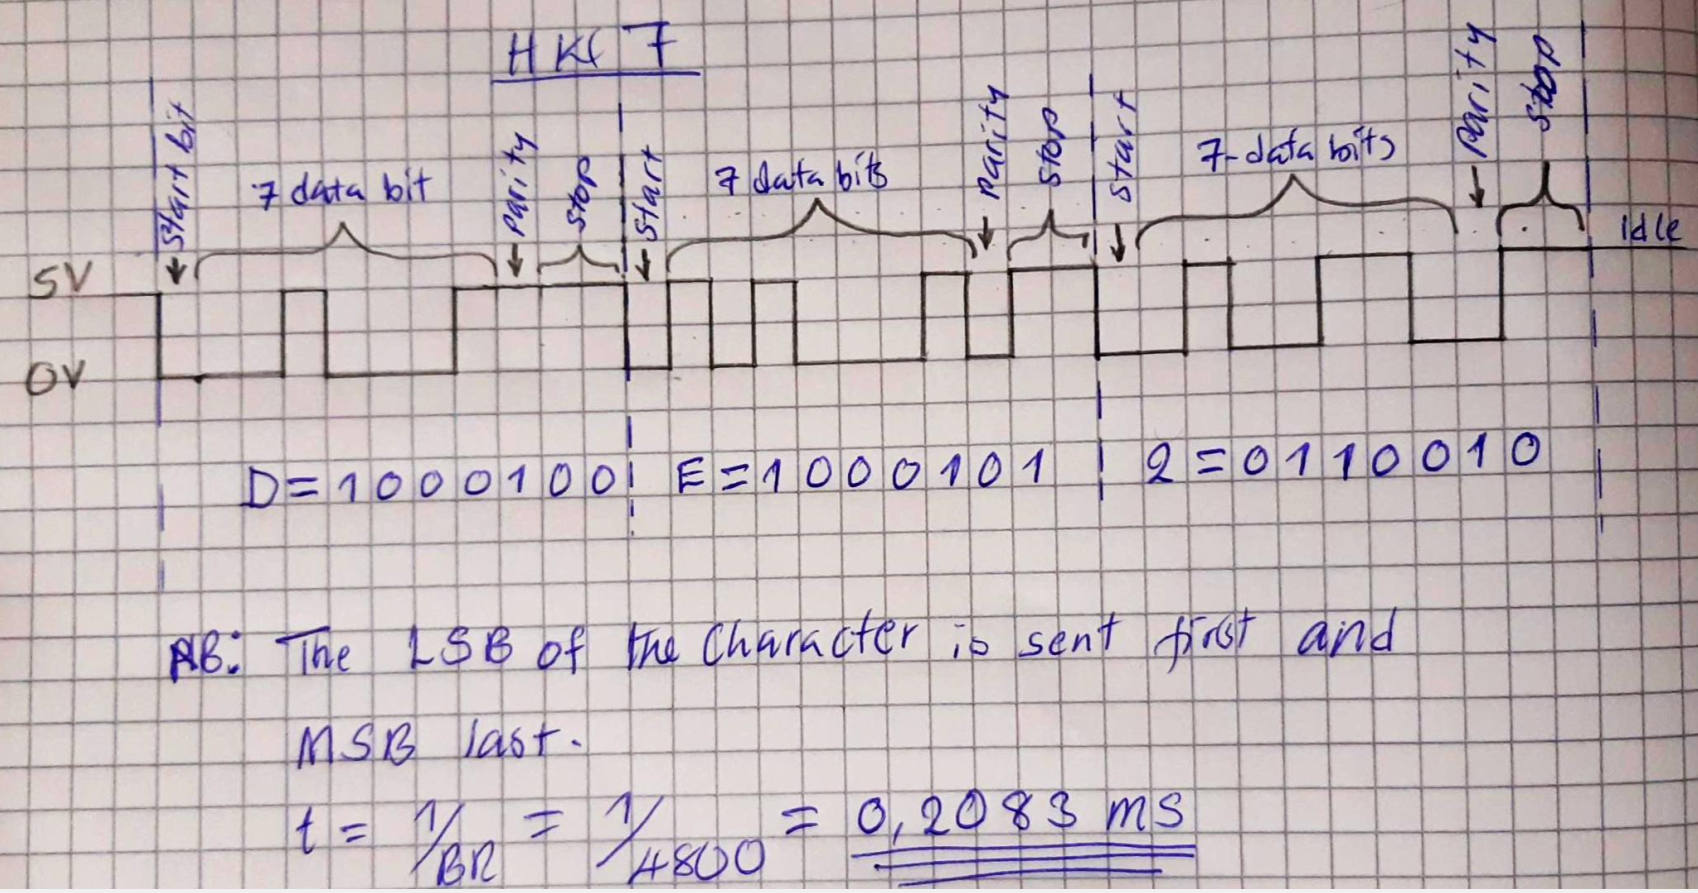 HKC 7
Start bit 7 data bit Parity Stop Start 7 data bits Parity Stop Start 7-data bits Parity Stop
Idle
5V
0V
D=1000100 E=1000101 2=0110010
NB: The LSB of the Character is sent first and
MSB last.
t = 1/BR = 1/4800 = 0,2083 ms